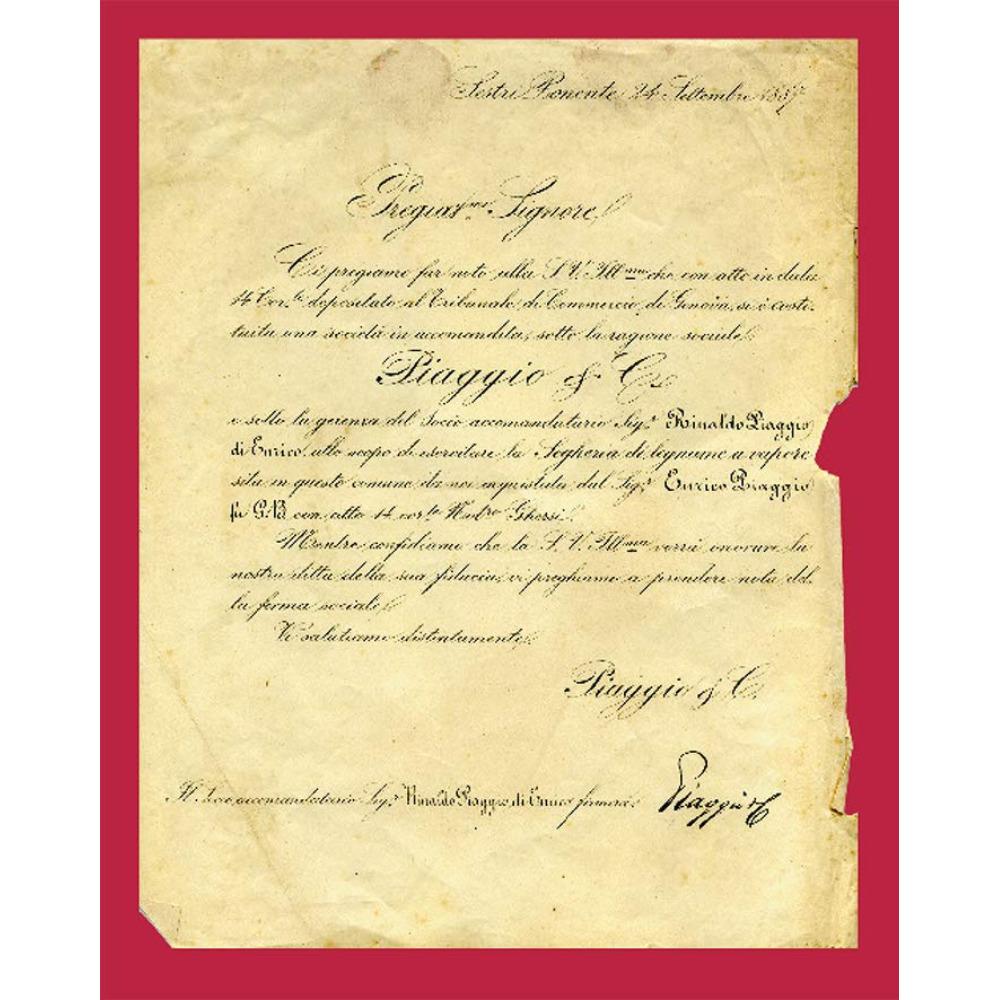 Sestri Ponente 24 Settembre 1887
Pregias.mo Signore,
Ci pregiamo far noto alla S. V. Ill.ma che con atto in data
14 Cor.te depositato al Tribunale di Commercio di Genova, si è costi-
tuita una società in accomandita, sotto la ragione sociale
Piaggio & C.
e sotto la gerenza del Socio accomandatario Sig.r Rinaldo Piaggio
di Enrico, allo scopo di esercitare la Segheria di legname a vapore
sita in questo comune da noi acquistata dal Sig.r Enrico Piaggio
fu G. B. con atto 14 cor.te Ghersi.
Mentre confidiamo che la S. V. Ill.ma vorrà onorare la
nostra ditta della sua fiducia, vi preghiamo a prendere nota del-
la firma sociale,
Vi salutiamo distintamente.
Piaggio & C.
Il Socio accomandatario Sig.r Rinaldo Piaggio di Enrico firmerà: Piaggio & C